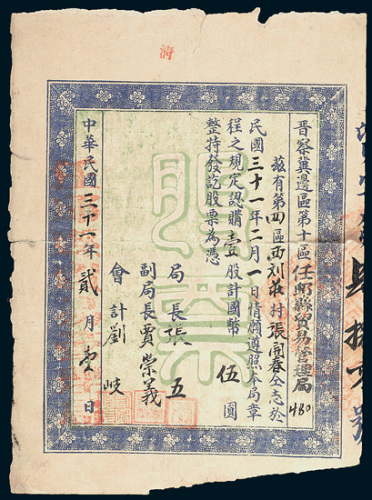 晋察冀邊區第十區任邱縣貿易管理局
480
茲有第四區西刘莊村張開春仝志於
民國三十一年二月一日情願遵照本局章
程之規定認購壹股計國幣伍圓
整特發訖股票為憑
局長張五
副局長賈榮義
會計劉岐
中華民國三十一年貳月壹日
股票